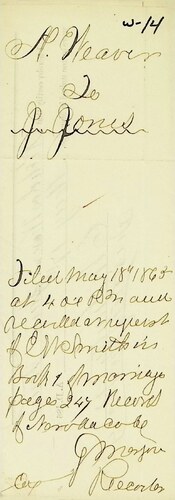 W-14
A. Weaver
To
J. Jones
Filed May 18th 1865
at 4 o'c P.M. and
recorded at request
of E W Smith in
Book 1 of marriage
pages 247 Records
of Nevada Co
Recorder